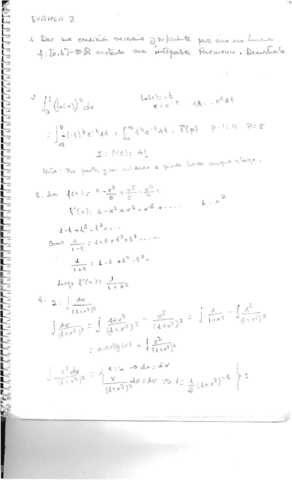 EXAMEN 2
1. Dar una condición necesaria y suficiente para que una función
f: [a,b] → R acotada sea integrable Riemann. Demuéstralo
2. ∫₀¹ (ln(x))⁴ dx    ln(x) = -t    x = e^-t    dx = -e^-t dt
= ∫ -(-t)⁴ e^-t dt = ∫₀^∞ t⁴ e^-t dt = Γ(p)    p-1=4    p=5
I = Γ(5) = 4!
Nota: Por partes, y con cuidado
3. Sea f(x) = x - x³/3 + x⁵/5 - x⁷/7 ...
f'(x) = 1 - x² + x⁴ - x⁶ + ....    t = x²
1 - t + t² - t³ + ...
Como 1/(1-t) = 1 + t + t² + t³ ....
1/(1+t) = 1 - t + t² - t³ ..
Luego f'(x) = 1/(1+x²)
4. ∫ dx/(1+x²)²
∫ dx/(1+x²)² = ∫ (1+x²)/(1+x²)² - x²/(1+x²)² = ∫ 1/(1+x²) - ∫ x²/(1+x²)²
= arctg(x) - ∫ x²/(1+x²)²
∫ x² dx/(1+x²)² = { u = x → du = dx
x/(1+x²)² dx = dv